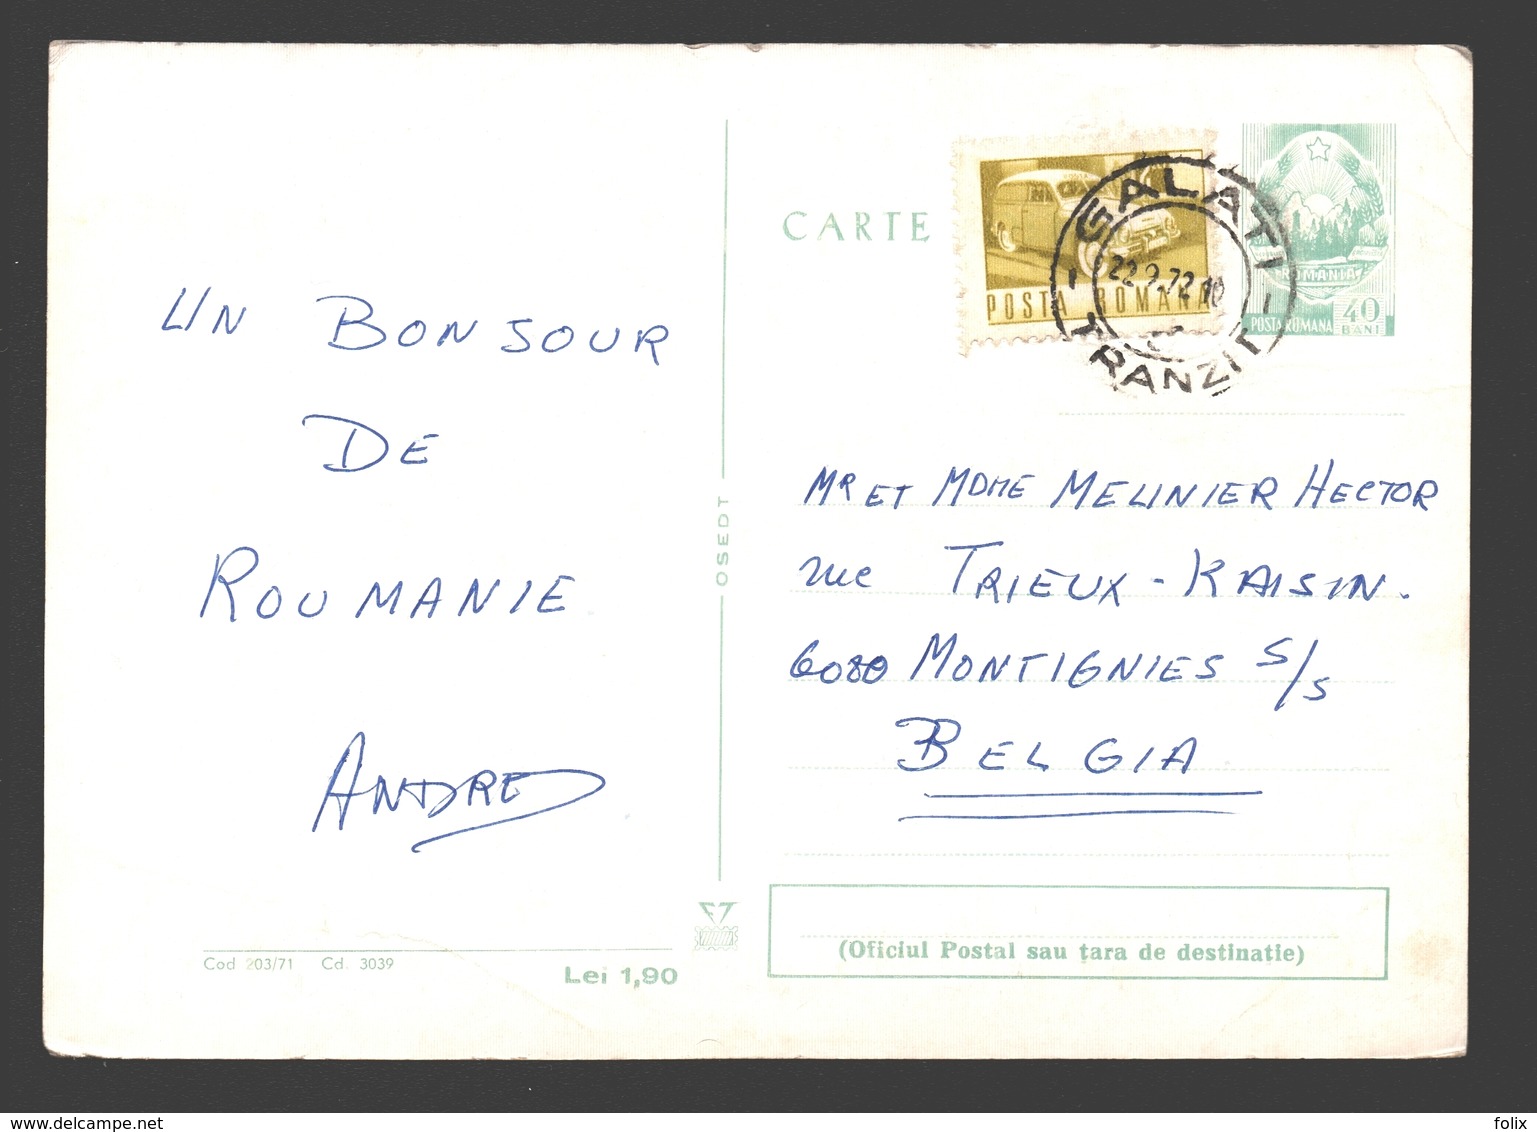 UN BONJOUR
DE
ROUMANIE
ANDRE
Cod 203/71 Cd. 3039
Lei 1,90
OSEDT
CARTE
POSTA ROMANA
GALATI
22.9.72.18
TRANZIT
ROMANIA
POSTA ROMANA
40
BANI
MR ET MDME MEUNIER HECTOR
rue TRIEUX-KAISIN.
6080 MONTIGNIES S/S
BELGIA
(Oficiul Postal sau țara de destinație)
www.delcampe.net
folix